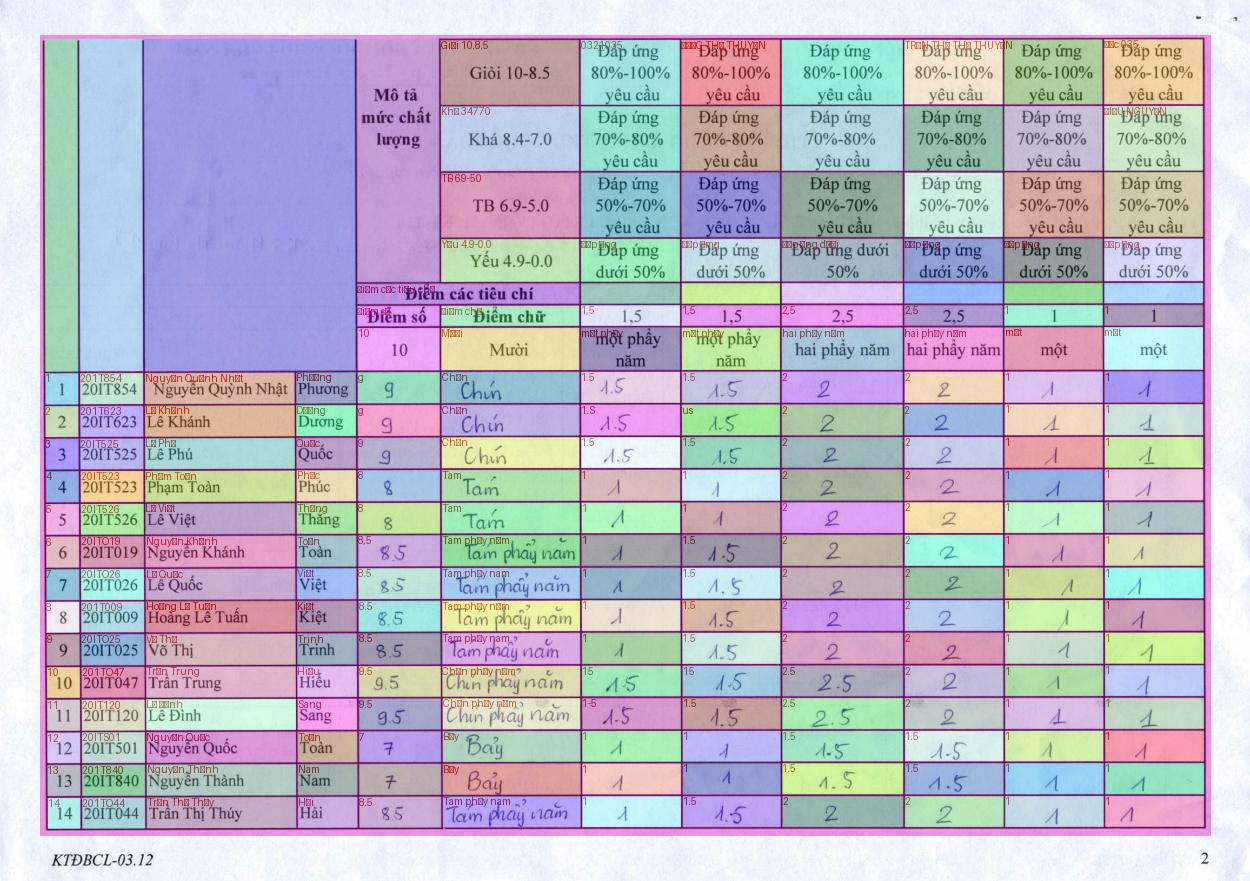 Mô tả mức chất lượng
Giỏi 10-8.5
Đáp ứng 80%-100% yêu cầu
Đáp ứng 80%-100% yêu cầu
Đáp ứng 80%-100% yêu cầu
Đáp ứng 80%-100% yêu cầu
Đáp ứng 80%-100% yêu cầu
Đáp ứng 80%-100% yêu cầu
Khá 8.4-7.0
Đáp ứng 70%-80% yêu cầu
Đáp ứng 70%-80% yêu cầu
Đáp ứng 70%-80% yêu cầu
Đáp ứng 70%-80% yêu cầu
Đáp ứng 70%-80% yêu cầu
Đáp ứng 70%-80% yêu cầu
TB 6.9-5.0
Đáp ứng 50%-70% yêu cầu
Đáp ứng 50%-70% yêu cầu
Đáp ứng 50%-70% yêu cầu
Đáp ứng 50%-70% yêu cầu
Đáp ứng 50%-70% yêu cầu
Đáp ứng 50%-70% yêu cầu
Yếu 4.9-0.0
Đáp ứng dưới 50%
Đáp ứng dưới 50%
Đáp ứng dưới 50%
Đáp ứng dưới 50%
Đáp ứng dưới 50%
Đáp ứng dưới 50%
Điểm các tiêu chí
Điểm số Điểm chữ 1,5 1,5 2,5 2,5 1 1
10 Mười một phẩy năm một phẩy năm hai phẩy năm hai phẩy năm một một
1 20IT854 Nguyễn Quỳnh Nhật Phương 9 Chín 1.5 1.5 2 2 1 1
2 20IT623 Lê Khánh Dương 9 Chín 1.5 1.5 2 2 1 1
3 20IT525 Lê Phú Quốc 9 Chín 1.5 1.5 2 2 1 1
4 20IT523 Phạm Toàn Phúc 8 Tám 1 1 2 2 1 1
5 20IT526 Lê Việt Thắng 8 Tám 1 1 2 2 1 1
6 20IT019 Nguyễn Khánh Toàn 8.5 Tám phẩy năm 1 1.5 2 2 1 1
7 20IT026 Lê Quốc Việt 8.5 Tám phẩy năm 1 1.5 2 2 1 1
8 20IT009 Hoàng Lê Tuấn Kiệt 8.5 Tám phẩy năm 1 1.5 2 2 1 1
9 20IT025 Võ Thị Trinh 8.5 Tám phẩy năm 1 1.5 2 2 1 1
10 20IT047 Trần Trung Hiếu 9.5 Chín phẩy năm 1.5 1.5 2.5 2 1 1
11 20IT120 Lê Đình Sang 9.5 Chín phẩy năm 1.5 1.5 2.5 2 1 1
12 20IT501 Nguyễn Quốc Toàn 7 Bảy 1 1 1.5 1.5 1 1
13 20IT840 Nguyễn Thành Nam 7 Bảy 1 1 1.5 1.5 1 1
14 20IT044 Trần Thị Thúy Hải 8.5 Tám phẩy năm 1 1.5 2 2 1 1
KTĐBCL-03.12 2